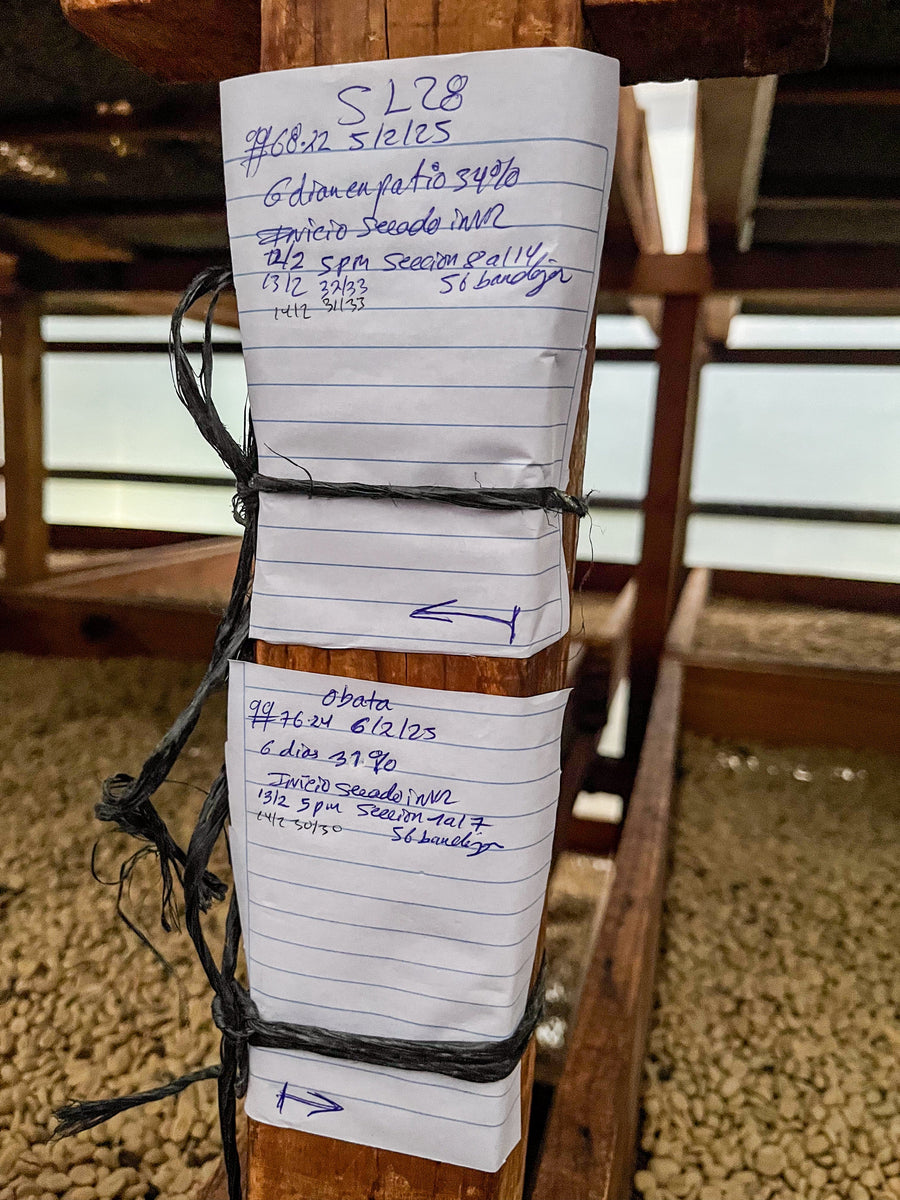 SL28
qq#68.22 5/2/25
6 dias en patio 34%
Inicio Secado inVR
12/2 5pm Seccion 8 al 14
56 bandejas
13/2 32/33
14/2 31/33
Obata
qq#76.24 6/2/25
6 dias 31%
Inicio Secado inVR
13/2 5pm Seccion 1 al 7
56 bandejas
14/2 30/30